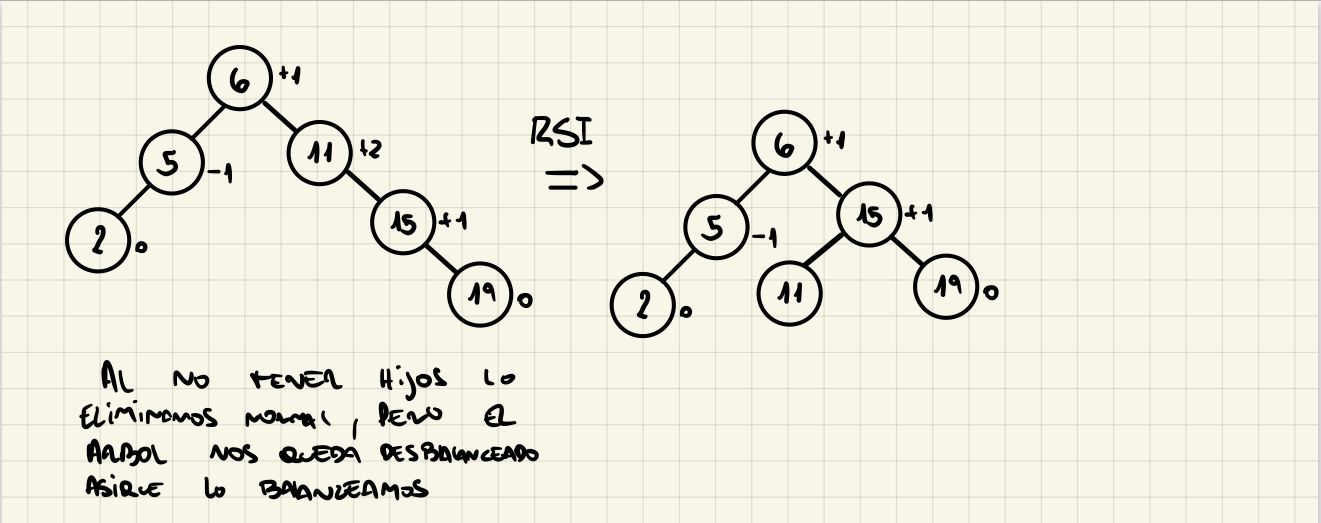 6 +1
5 -1
11 +2
2 0
15 +1
19 0
RSI
=>
6 +1
5 -1
15 +1
2 0
11
19 0
AL NO TENER HIJOS LO
ELIMINAMOS NORMAL, PERO EL
ARBOL NOS QUEDA DESBALANCEADO
ASIQUE LO BALANCEAMOS